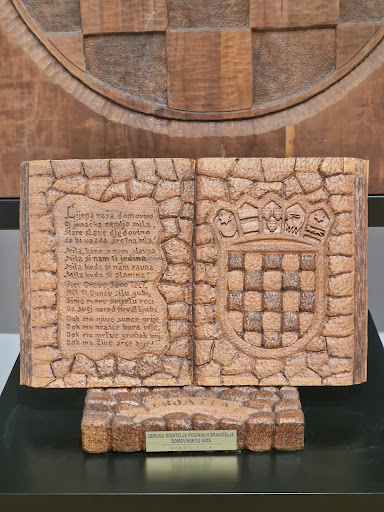 Lijepa naša domovino
Oj junačka zemljo mila,
Stare slave djedovino
da bi vazda sretna bila!
Mila kano si nam slavna
Mila si nam ti jedina
Mila kuda si nam ravna
Mila kuda si planina!
Teci Dravo, Savo teci
Nit ti Dunav silu gubi,
Sinje more svijetu reci
Da svoj narod Hrvat ljubi
Dok mu njive sunce grije
Dok mu hrašće bura vije,
Dok mu mrtve grobak
Dok mu živo srce bije!
UDRUGA RODITELJA POGINULIH BRANITELJA
DOMOVINSKOG RATA